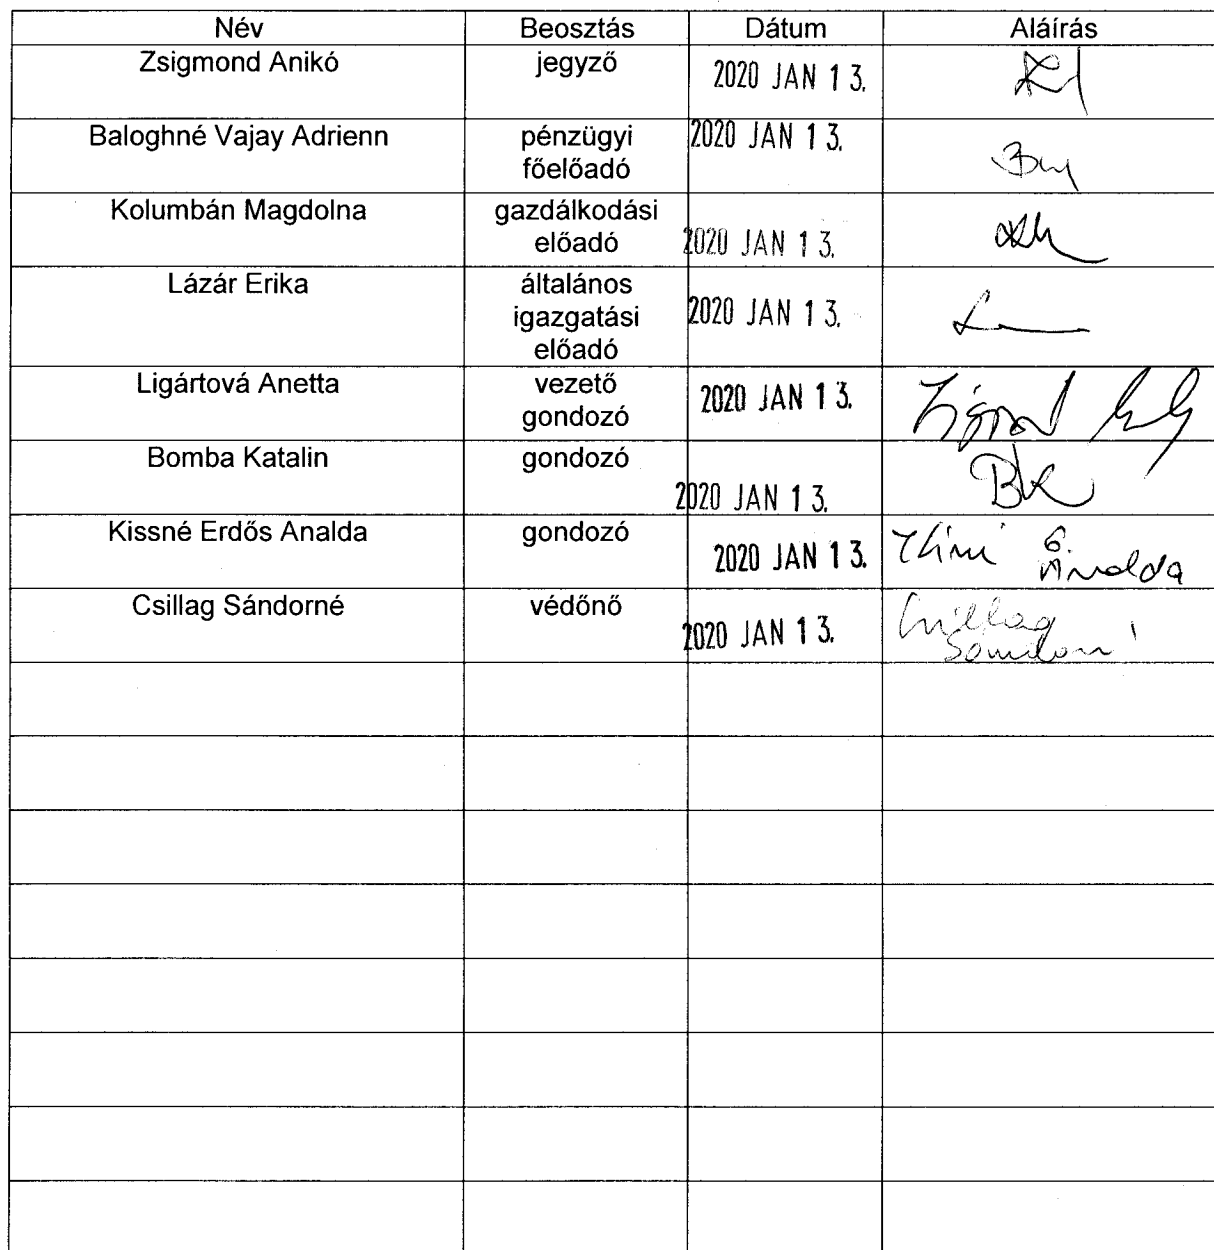 Név Beosztás Dátum Aláírás
Zsigmond Anikó jegyző 2020 JAN 13.
Baloghné Vajay Adrienn pénzügyi 2020 JAN 13.
főelőadó
Kolumbán Magdolna gazdálkodási
előadó 2020 JAN 13.
Lázár Erika általános
igazgatási 2020 JAN 13.
előadó
Ligártová Anetta vezető 2020 JAN 13.
gondozó
Bomba Katalin gondozó BK
2020 JAN 13.
Kissné Erdős Analda gondozó
2020 JAN 13. Analda
Csillag Sándorné védőnő
2020 JAN 13. Csillag
Sándorné